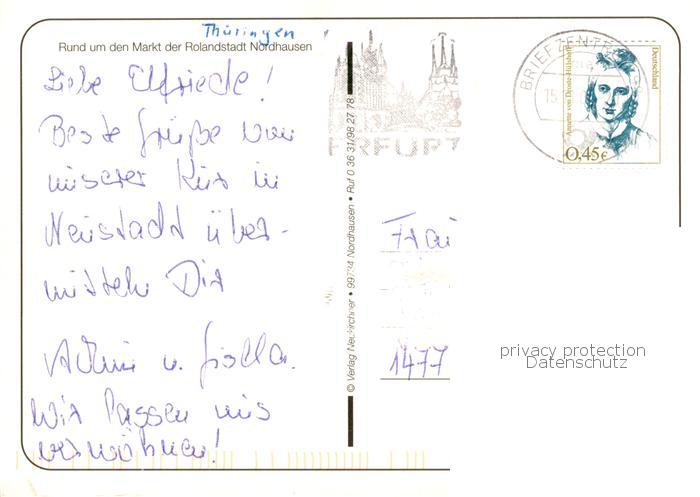 Thüringen
Rund um den Markt der Rolandstadt Nordhausen
Liebe Elfriede!
Beste Grüße von
unserer Kur in
Neustadt über-
mitteln Dir
Achim u. Gisela.
Wir lassen uns
verwöhnen!
© Verlag Neukirchner • 99734 Nordhausen • Ruf 0 36 31/98 27 78
ERFURT
BRIEFZENT
15
Annette von Droste-Hülshoff
Deutschland
0,45€
Frau
1477
privacy protection
Datenschutz